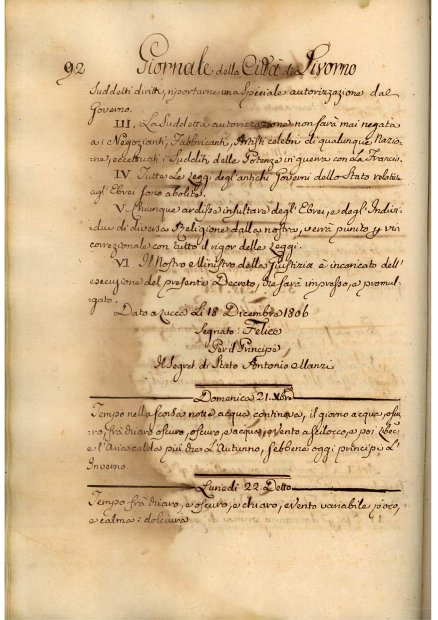 92 Giornale della Città di Livorno
Suddetti diritti, riportarne una speciale autorizzazione dal
Governo.
III. La Suddetta autorizzazione non sarà mai negata
a i Negozianti, Fabbricanti, Artisti celebri di qualunque Nazio-
ne, eccettuati i Sudditi delle Potenze in guerra con La Francia.
IV. Tutte Le Leggi degl'antichi Governi dello Stato relative
agl'Ebrei sono abolite.
V. Chiunque ardisse insultare degl'Ebrei, e degl'Indivi-
dui di diversa Religione dalla nostra, verrà punito p via
correzionale con tutto il rigor delle Leggi.
VI. Il Nostro Ministro della Giustizia è incaricato dell'
esecuzione del presente Decreto, che sarà impresso, e promul-
gato.
Dato a Lucca Li 18 Dicembre 1806
Segnato: Felice
Per il Principe
Il Segret di Stato Antonio Manzi
Domenica 21 Xbre
Tempo nella scorsa notte acqua continova, il giorno acqua,
frà chiaro oscuro, oscuro, e acqua, e vento a scilocco, e poi
e l'Aria calda più che L'Autunno, sebbene oggi principi L'
Inverno
Lunedì 22 Detto
Tempo frà chiaro, e oscuro, e chiaro, e vento variabile poco,
e calma: dolciura